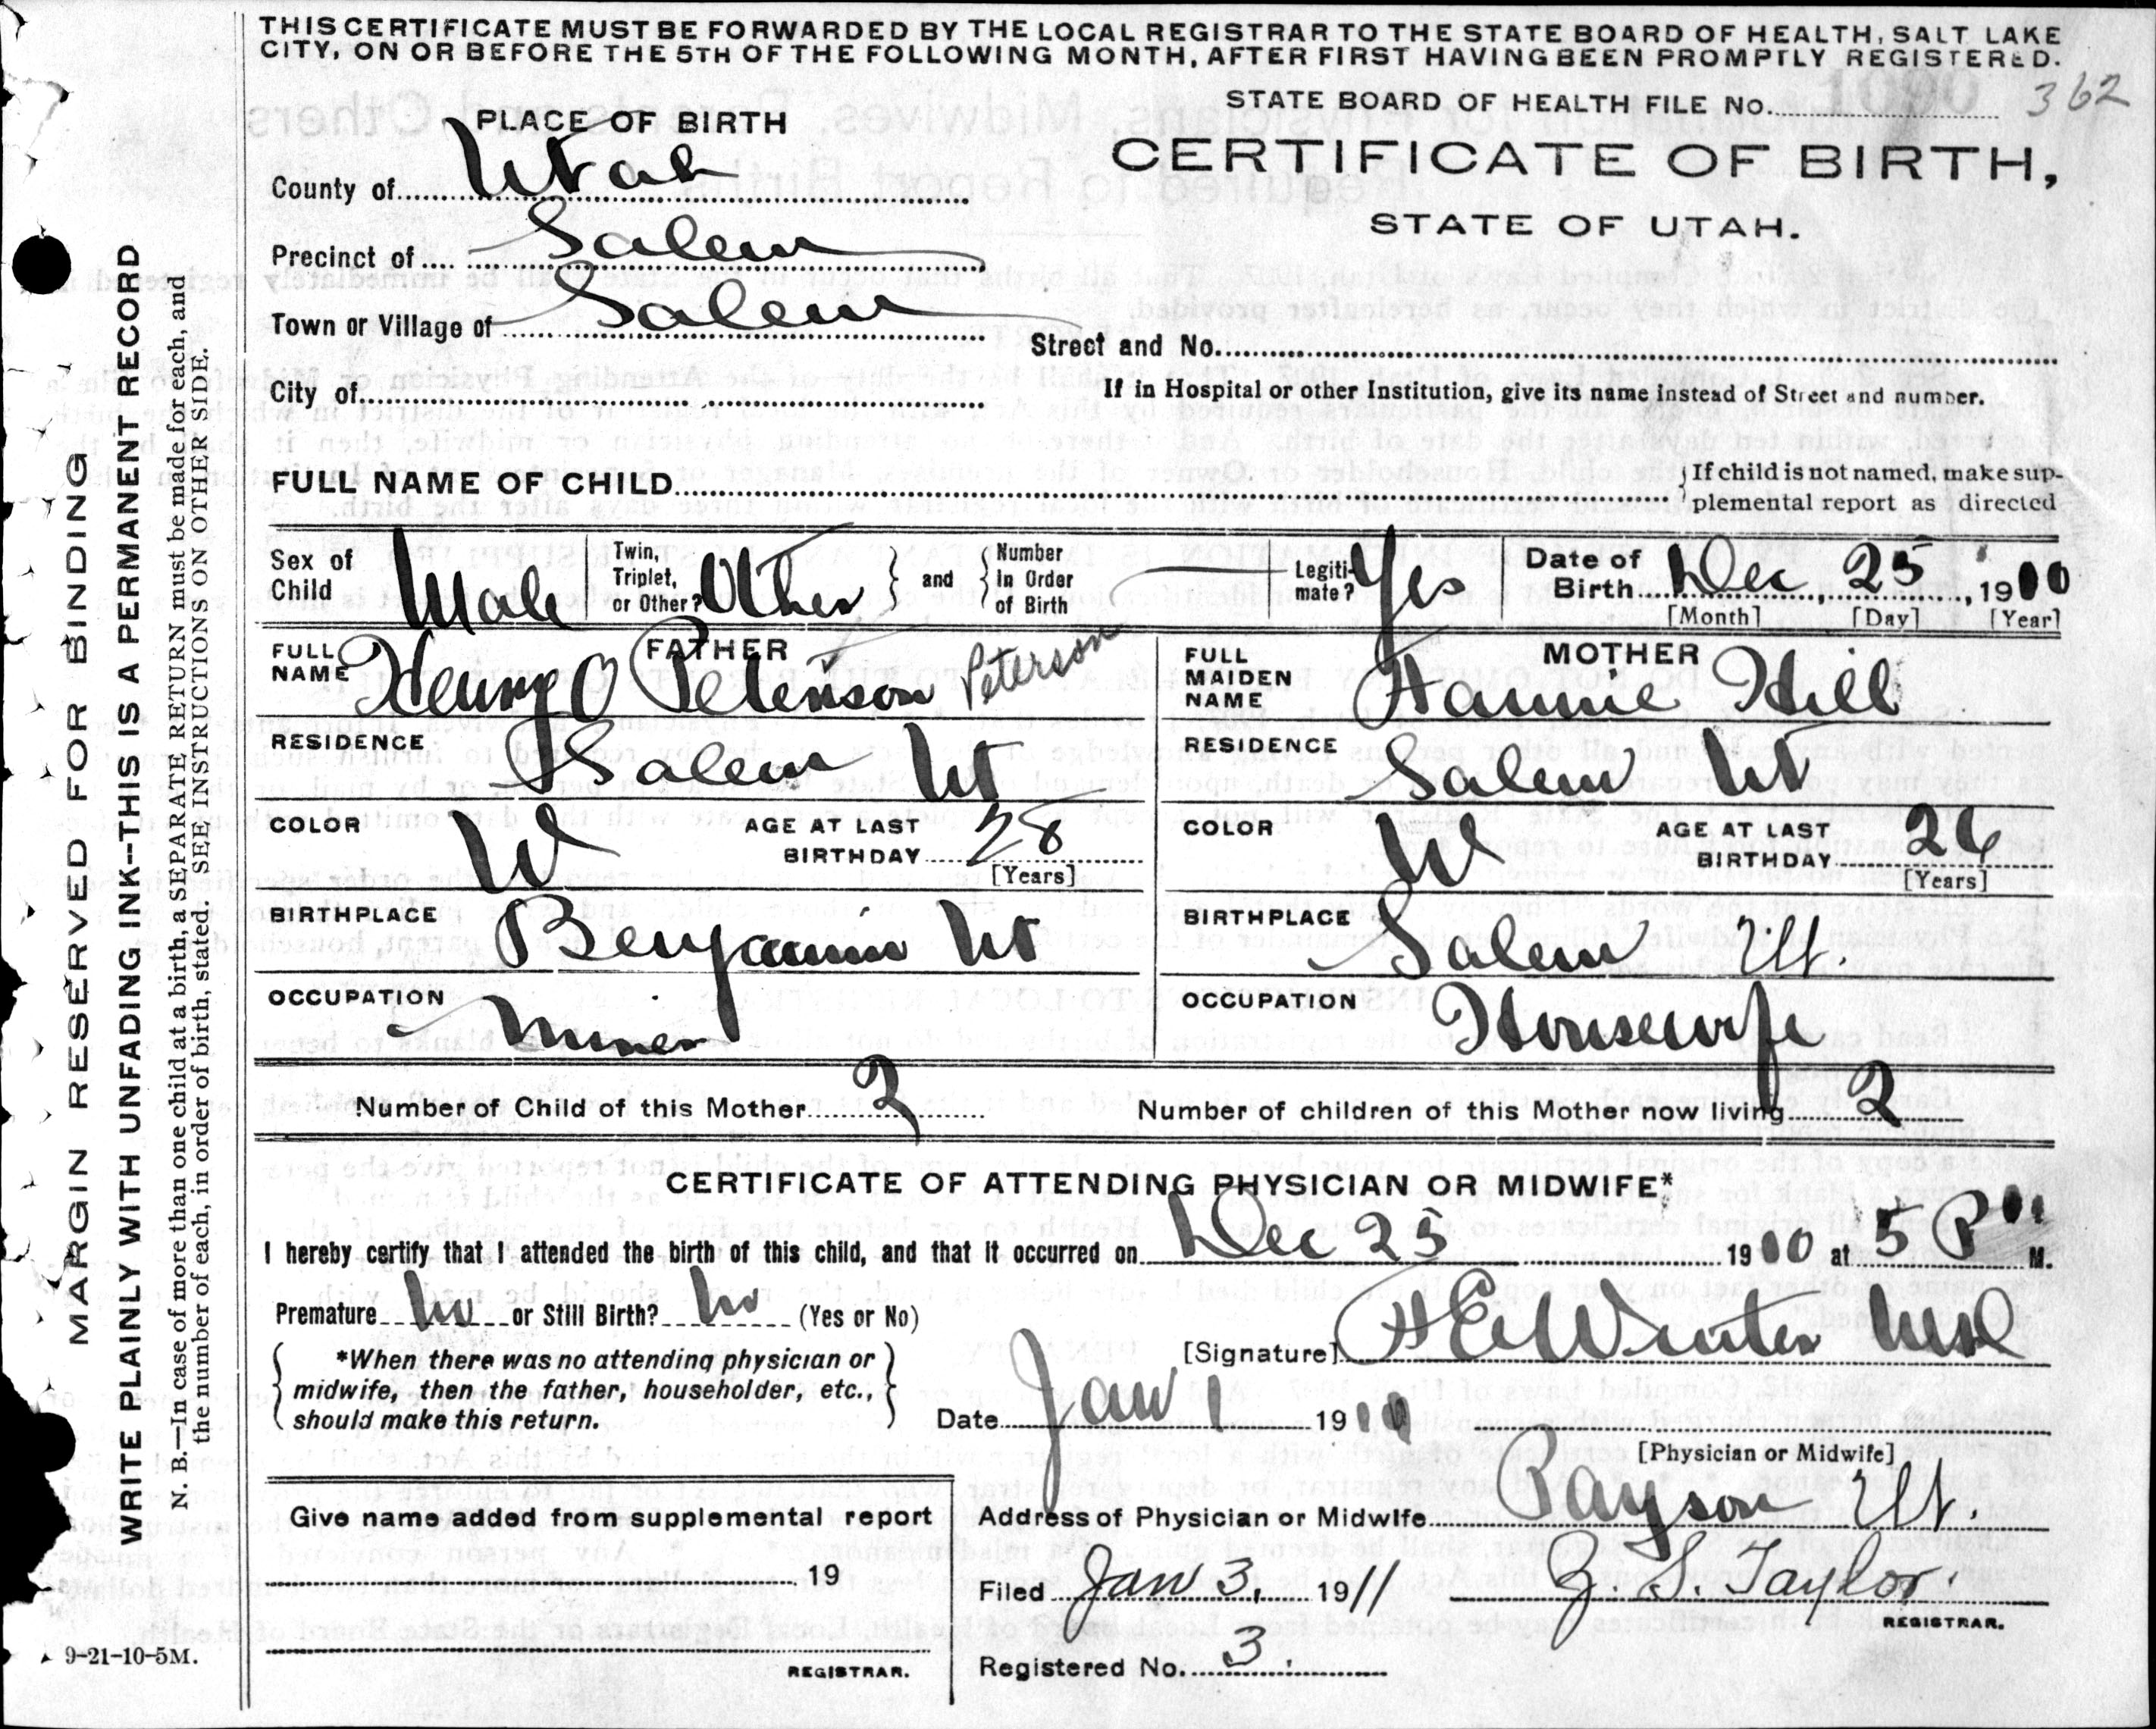 THIS CERTIFICATE MUST BE FORWARDED BY THE LOCAL REGISTRAR TO THE STATE BOARD OF HEALTH, SALT LAKE
CITY, ON OR BEFORE THE 5TH OF THE FOLLOWING MONTH, AFTER FIRST HAVING BEEN PROMPTLY REGISTERED.
STATE BOARD OF HEALTH FILE No. 362
PLACE OF BIRTH
CERTIFICATE OF BIRTH,
STATE OF UTAH.
County of Utah
Precinct of Salem
Town or Village of Salem
Street and No.
City of
If in Hospital or other Institution, give its name instead of Street and number.
FULL NAME OF CHILD
If child is not named, make sup-
plemental report as directed
Sex of Child Male
Twin, Triplet, or Other? Other
and Number In Order of Birth
Legiti-mate? Yes
Date of Birth Dec 25, 1910
[Month] [Day] [Year]
FATHER
FULL NAME Henry O Peterson Peterson
MOTHER
FULL MAIDEN NAME Fannie Hill
RESIDENCE Salem Ut
RESIDENCE Salem Ut
COLOR W AGE AT LAST BIRTHDAY 28 [Years]
COLOR W AGE AT LAST BIRTHDAY 26 [Years]
BIRTHPLACE Benjamin Ut
BIRTHPLACE Salem Ut.
OCCUPATION Miner
OCCUPATION Housewife
Number of Child of this Mother 2
Number of children of this Mother now living 2
CERTIFICATE OF ATTENDING PHYSICIAN OR MIDWIFE*
I hereby certify that I attended the birth of this child, and that it occurred on Dec 25 1910 at 5 P M.
Premature no or Still Birth? no (Yes or No)
*When there was no attending physician or
midwife, then the father, householder, etc.,
should make this return.
[Signature] Winter MD
Date Jan 1 19
[Physician or Midwife]
Address of Physician or Midwife Payson Ut.
Give name added from supplemental report
19
REGISTRAR.
Filed Jan 3, 1911
Z. S. Taylor.
REGISTRAR.
Registered No. 3.
MARGIN RESERVED FOR BINDING
WRITE PLAINLY WITH UNFADING INK--THIS IS A PERMANENT RECORD
N. B.—In case of more than one child at a birth, a SEPARATE RETURN must be made for each, and
the number of each, in order of birth, stated: SEE INSTRUCTIONS ON OTHER SIDE.
9-21-10-5M.